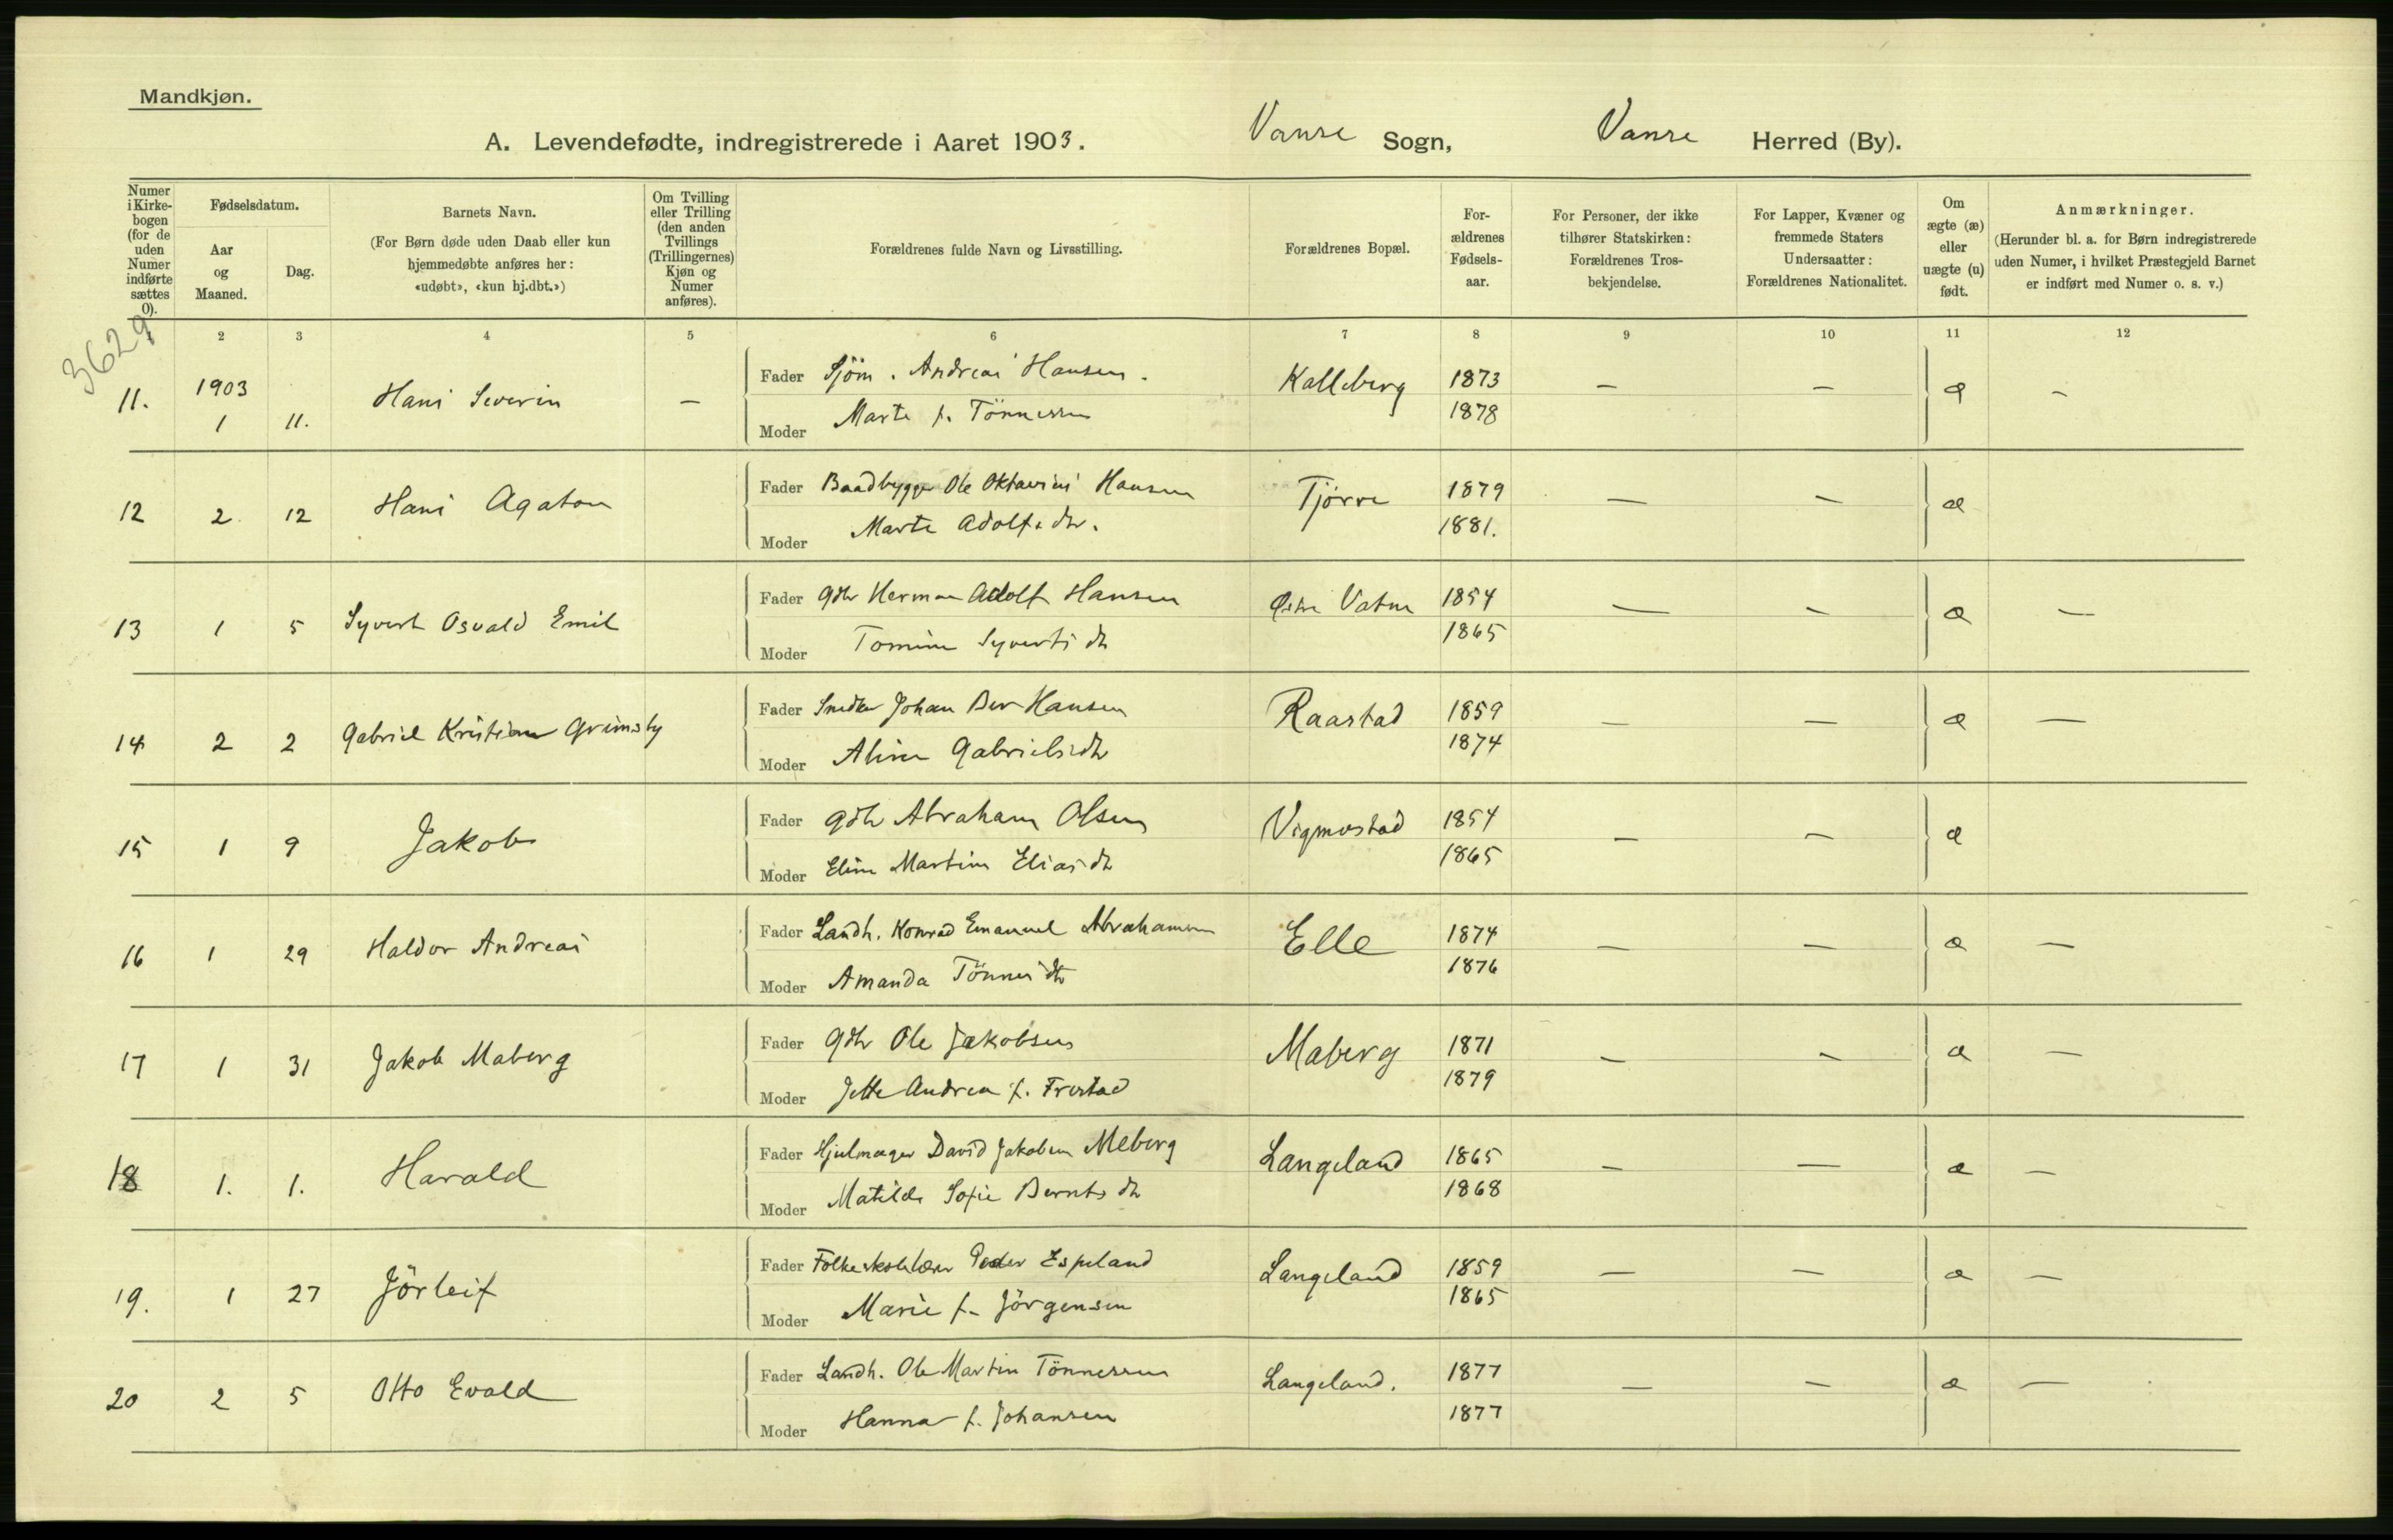 Mandkjøn.
A. Levendefødte, indregistrerede i Aaret 1903. Vanse Sogn, Vanse Herred (By).
Numer i Kirke-bogen (for de uden Numer indførte sættes 0).
Fødselsdatum.
Aar og Maaned.
Dag.
Barnets Navn.
(For Børn døde uden Daab eller kun hjemmedøbte anføres her: «udøbt», «kun hj.dbt.»)
Om Tvilling eller Trilling (den anden Tvillings (Trillingernes) Kjøn og Numer anføres).
Forældrenes fulde Navn og Livsstilling.
Forældrenes Bopæl.
For-ældrenes Fødsels-aar.
For Personer, der ikke tilhører Statskirken: Forældrenes Tros-bekjendelse.
For Lapper, Kvæner og fremmede Staters Undersaatter: Forældrenes Nationalitet.
Om ægte (æ) eller uægte (u) født.
Anmærkninger.
(Herunder bl. a. for Børn indregistrerede uden Numer, i hvilket Præstegjeld Barnet er indført med Numer o. s. v.)
3629
2 3 4 5 6 7 8 9 10 11 12
11. 1903 1 11. Hans Severin — Fader Sjöm. Andreas Hansen. Kalleberg 1873 — — æ —
Moder Marte f. Tönnessen 1878
12 2. 12 Hans Agaton Fader Baadbygger Ole Oktavius Hansen Tjörve 1879 — — æ
Moder Marte Adolfsdtr. 1881.
13 1 5 Syvert Osvald Emil Fader Gdbr Herman Adolf Hansen Östre Vatne 1854 — — æ —
Moder Tomine Syvertsdtr 1865
14 2 2 Gabriel Kristian Grimsby Fader Snedker Johan Ber Hansen Raastad 1859 — — æ —
Moder Aline Gabrielsdtr 1874
15 1 9 Jakob Fader Gdbr Abraham Olsen Vigmostad 1854 — — æ
Moder Eline Martine Eliasdtr 1865
16 1 29 Haldor Andreas Fader Landh. Konrad Emanuel Abrahamsen Elle 1874 — — æ —
Moder Amanda Tönnesdtr 1876
17 1 31 Jakob Maberg Fader Gdbr Ole Jakobsen Maberg 1871 — — æ —
Moder Jette Andrea f. Frestad 1879
18 1. 1. Harald Fader Hjulmager David Jakobsen Meberg Langeland 1865 — — æ —
Moder Matilde Sofie Berntsdtr 1868
19. 1 27 Jörleif Fader Folkeskolelærer Peder Espeland Langeland 1859 — — æ —
Moder Marie f. Jörgensen 1865
20 2 5 Otto Evald Fader Landh. Ole Martin Tönnessen Langeland. 1877 — — æ —
Moder Hanna f. Johansen 1877